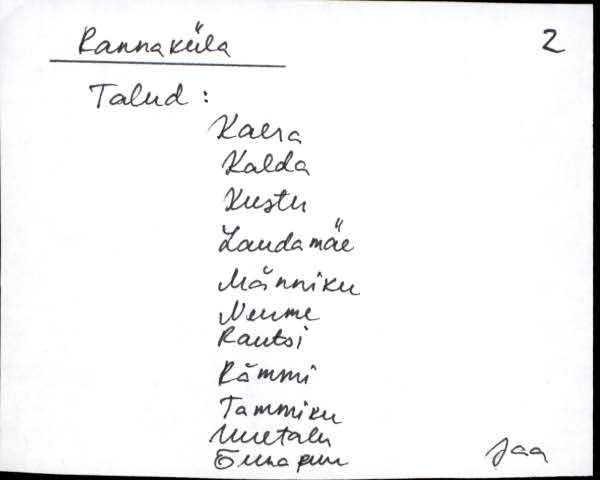 Rannaküla 2
Talud :
Kaera
Kalda
Kustu
Laudamäe
Männiku
Nurme
Rautsi
Rämmi
Tammiku
Uuetalu
Õunapuu
Jaa